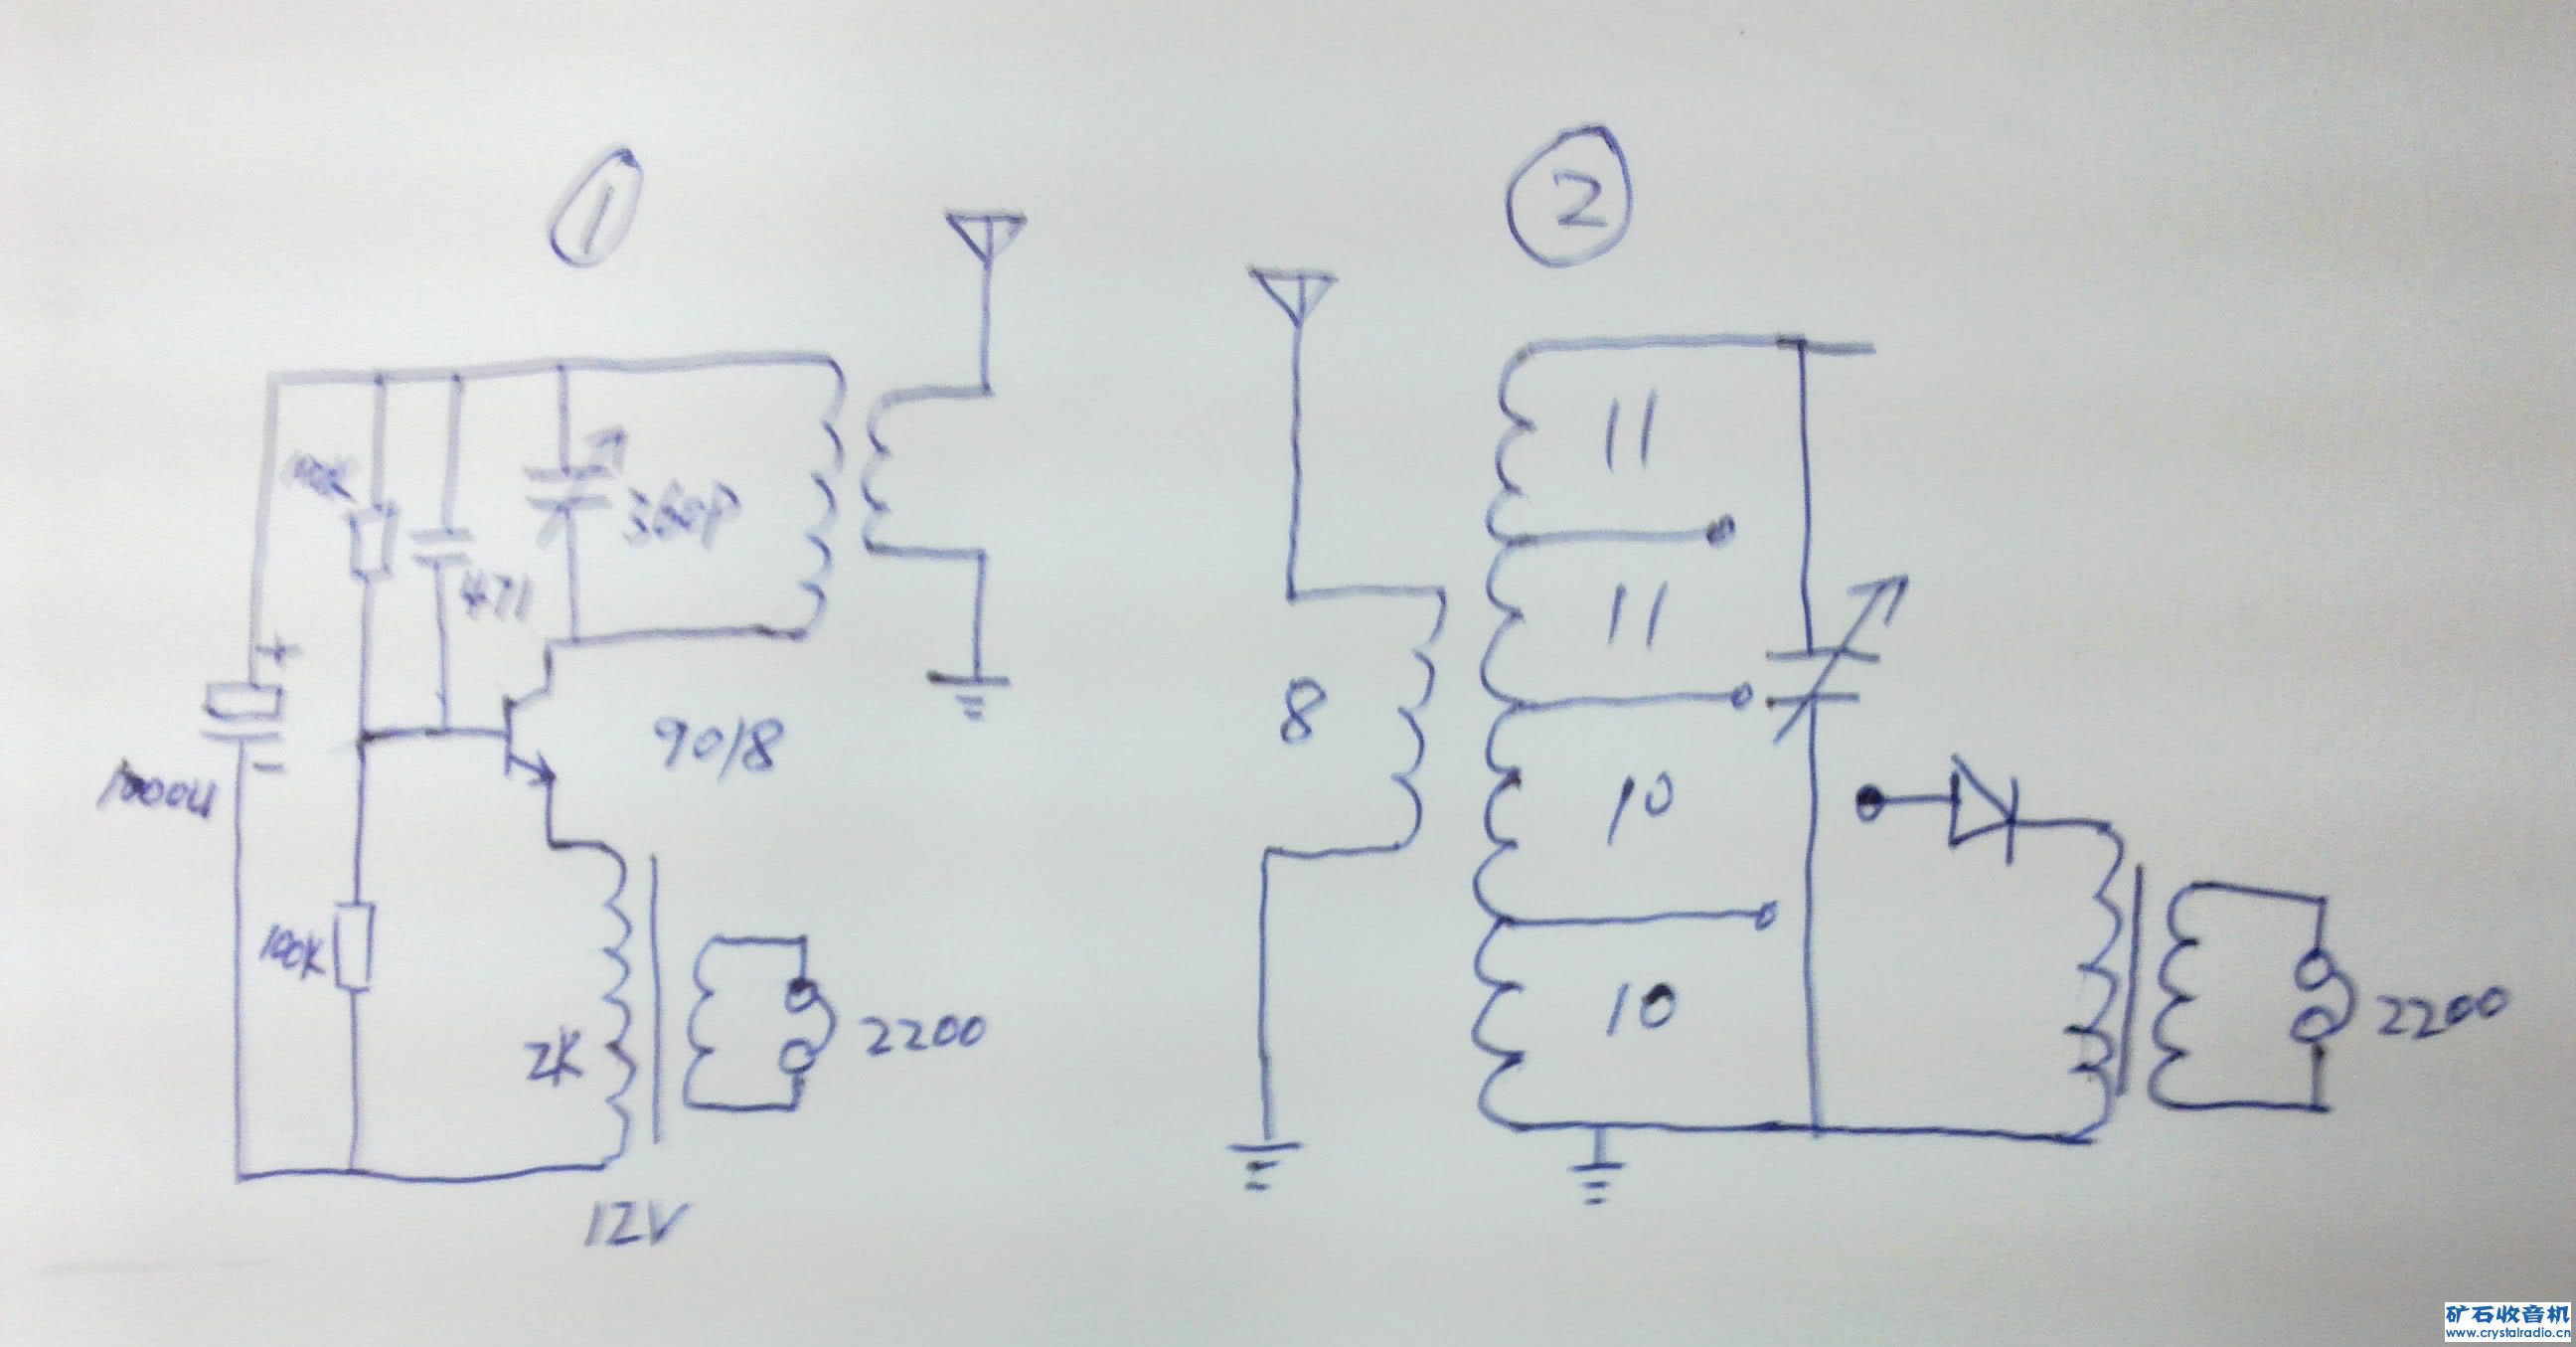 ①
360P
471
9018
1000u
+
−
100K
2K
2200
12V
②
11
11
8
10
10
2200
矿石收音机
www.crystalradio.cn